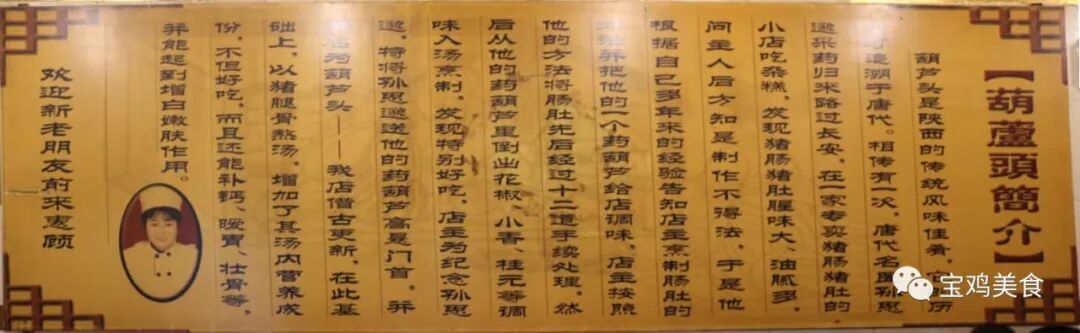 【葫蘆頭簡介】
葫芦头是陕西的传统风味佳肴,
可追溯于唐代。相传有一次,唐代名医孙思
邈采药归来路过长安,在一家专卖猪肠猪肚的
小店吃杂糕,发现猪肠猪肚腥味大、油腻多,
问主人后方知是制作不得法,于是他
根据自己多年来的经验告知店主烹制肠肚的
并把他的一个药葫芦给店调味,店主按照
他的方法将肠肚先后经过十二道手续处理,然
后从他的药葫芦里倒出花椒、小香、桂元等调
味入汤烹制,发现特别好吃。店主为纪念孙思
邈,特将孙思邈送他的药葫芦高悬门首,并
名为葫芦头——我店借古更新,在此基
础上,以猪腿骨熬汤,增加了其汤内营养成
份,不但好吃,而且还能补钙、暖胃、壮骨等,
并能起到增白嫩肤作用。
欢迎新老朋友前来惠顾
宝鸡美食